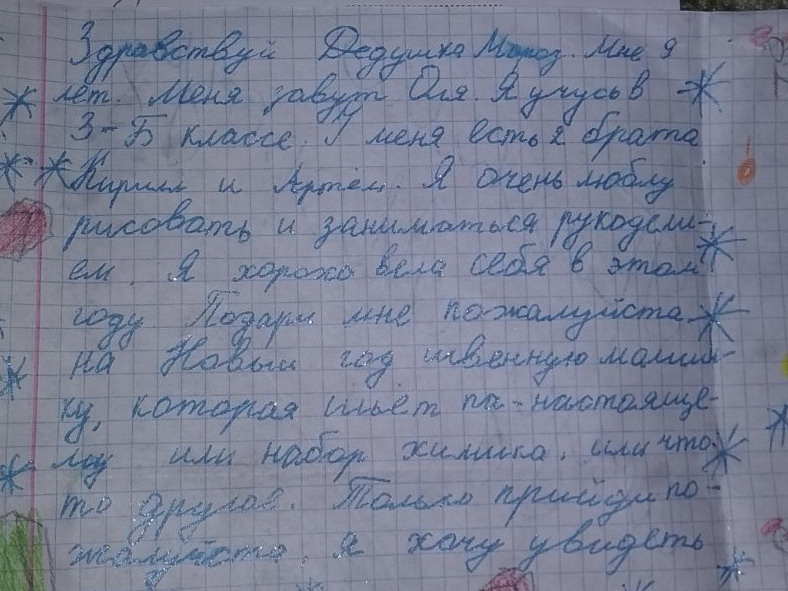 Здравствуй Дедушка Мороз. Мне 9
лет. Меня завут Оля. Я учусь в
3-Б классе. У меня есть 2 брата
Кирилл и Артём. Я очень люблу
рисовать и заниматься рукодели-
ем. Я хорохо вела себя в этом
году. Подари мне пожалуйста
на Новый год швенную машин-
ку, которая шьёт па-настояще-
му или набор химика. или что-
то другое. Только прийди по-
жалуйста, я хочу увидеть